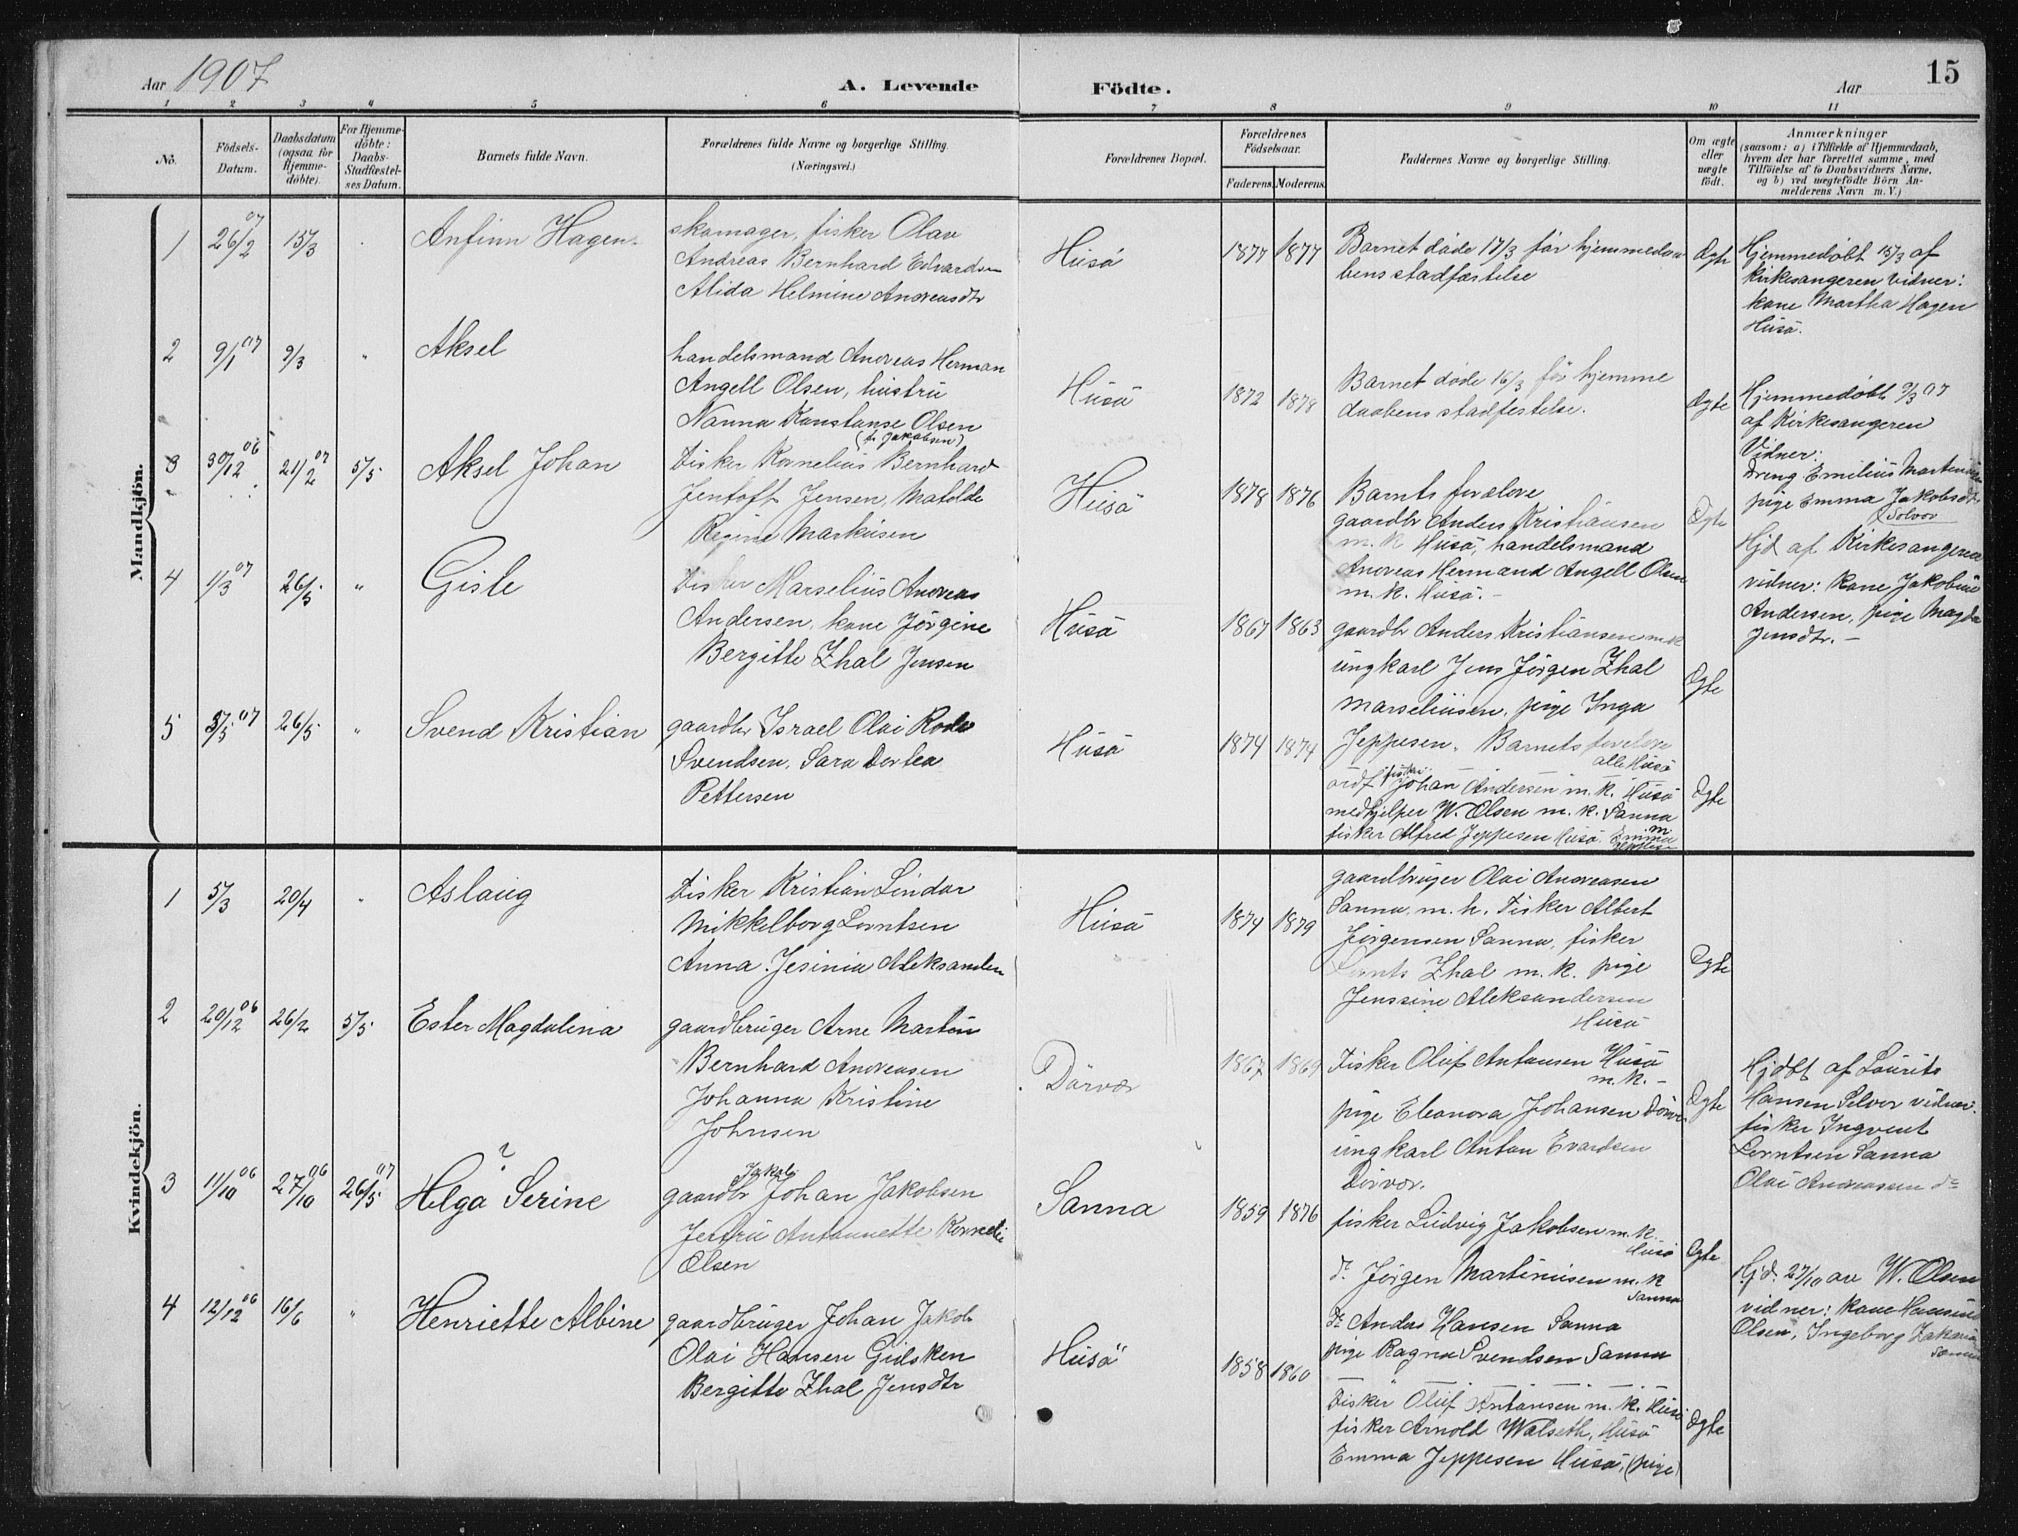 Aar 1907 A. Levende Födte. Aar 15
1 2 3 4 5 6 7 8 9 10 11
No. Födsels-Datum. Daabsdatum (ogsaa for Hjemme-döbte). For Hjemme-döbte: Daabs-Stadfæstel-ses Datum. Barnets fulde Navn. Forældrenes fulde Navne og borgerlige Stilling. (Næringsvei.) Forældrenes Bopæl. Forældrenes Födselsaar. Faderens. Moderens. Faddernes Navne og borgerlige Stilling. Om ægte eller uægte födt. Anmærkninger (saasom: a) i Tilfælde af Hjemmedaab, hvem der har forrettet samme, med Tilföielse af to Daabsvidners Navne, og b) ved uægtefödte Börn An-melderens Navn m. V.)
Mandkjön.
1 26/2 07 15/3 Anfinn Hagen
skomager, fisker Olav
Andreas Bernhard Edvardsen
Alida Helmine Andreasdtr
Husö 1877 1877
Barnet døde 17/3 før hjemmedaa
bens stadfæstelse
Ægte
Hjemmedøbt 15/3 af
kirkesangeren vidner:
kone Martha Hagen
Husö.
2 9/1 07 9/3 " Aksel
handelsmand Andreas Herman
Angell Olsen, hustru
Nanna Konstanse Olsen
(f. Jakobsen)
Husö 1872 1878
Barnet døde 16/3 før hjemme
daabens stadfestelse.
Ægte
Hjemmedøbt 9/3 07
af Kirkesangeren
Vidner:
Dreng Emilius
pige Emma Jakobsdtr
Solvær
3 30/12 06 21/2 07 5/5 Aksel Johan
Fisker Kornelius Bernhard
Jentoft Jensen, Matilde
Regine Markusen
Husö 1878 1876
Barnets forældre
gaardbr Anders Kristiansen
m. k Husö, handelsmand
Andreas Hermand Angell Olsen
m. k. Husö. -
Ægte
Hjd af Kirkesangeren
vidner: kone Jakobine
Andersen, pige Magda
Jensdtr. -
4 1/3 07 26/5 " Gisle
Fisker Marselius Andreas
Andersen, kone Jörgine
Bergitte Zhal Jensen
Husö 1867 1863
gaardbr Anders Kristiansen m.k
ungkarl Jens Jörgen Zhal
Marseliusen, pige Inga
Jeppesen. Barnets forældre
alle Husö
Ægte
5 3/5 07 26/5 " Svend Kristian
gaardbr Israel Olai Rode
Svendsen, Sara Dortea
Pettersen
Husö 1874 1874
ordf fisker Johan Andersen m. k. Husö
medhjelper W. Olsen m. k. Sanna
fisker Alfred Jeppesen Husö. Emma
Ægte
Kvindekjön.
1 5/3 20/4 " Aslaug
Fisker Kristian Lindor
Mikkelborg Lorntsen
Anna Jesinia Aleksandersen
Husö 1874 1879
gaardbruger Olai Andreasen
Sanna, m. h. Fisker Albert
Jörgensen Sanna, fisker
Zhal m. k. pige
Jenssine Aleksandersen
Husö
Ægte
2 20/12 06 26/2 5/5 Ester Magdalina
gaardbruger Arne Martin
Bernhard Andreasen
Johanna Kristine
Johnsen
Dörvær 1867 1869
Fisker Oluf Antonsen Husö
m. k. -
pige Eleonora Johansen Dörvær
ungkarl Anton Evardsen
Dörvær.
Ægte
Hjdbt af Laurits
Hansen Selvær vidner.
fisker Ingvent
Lorntsen Sanna
Olai Andreassen do
3 11/10 06 27/10 06 26/5 07 Helga ? Serine
gaardbr Johan Jakob Jakobsen
Antonnette Korneli
Olsen
Sanna 1859 1876
fisker Ludvig Jakobsen m. k.
Husö
do Jörgen Martinusen m. k
Sanna
do Anders Hansen Sanna
pige Ragna Svendsen Sanna
Ægte
Hjd. 27/10 av W. Olsen
vidner: kone Hansine
Olsen, Ingeborg
4 12/12 06 16/6 " Henriette Albine
gaardbruger Johan Jakob
Olai Hansen Gidsken
Bergitte Zhal Jensdtr
Husö 1858 1860
Fisker Oluf Antonsen m. k. Husö
fisker Arnold Walseth, Husö
Emma Jeppesen Husö, (pige)
Ægte